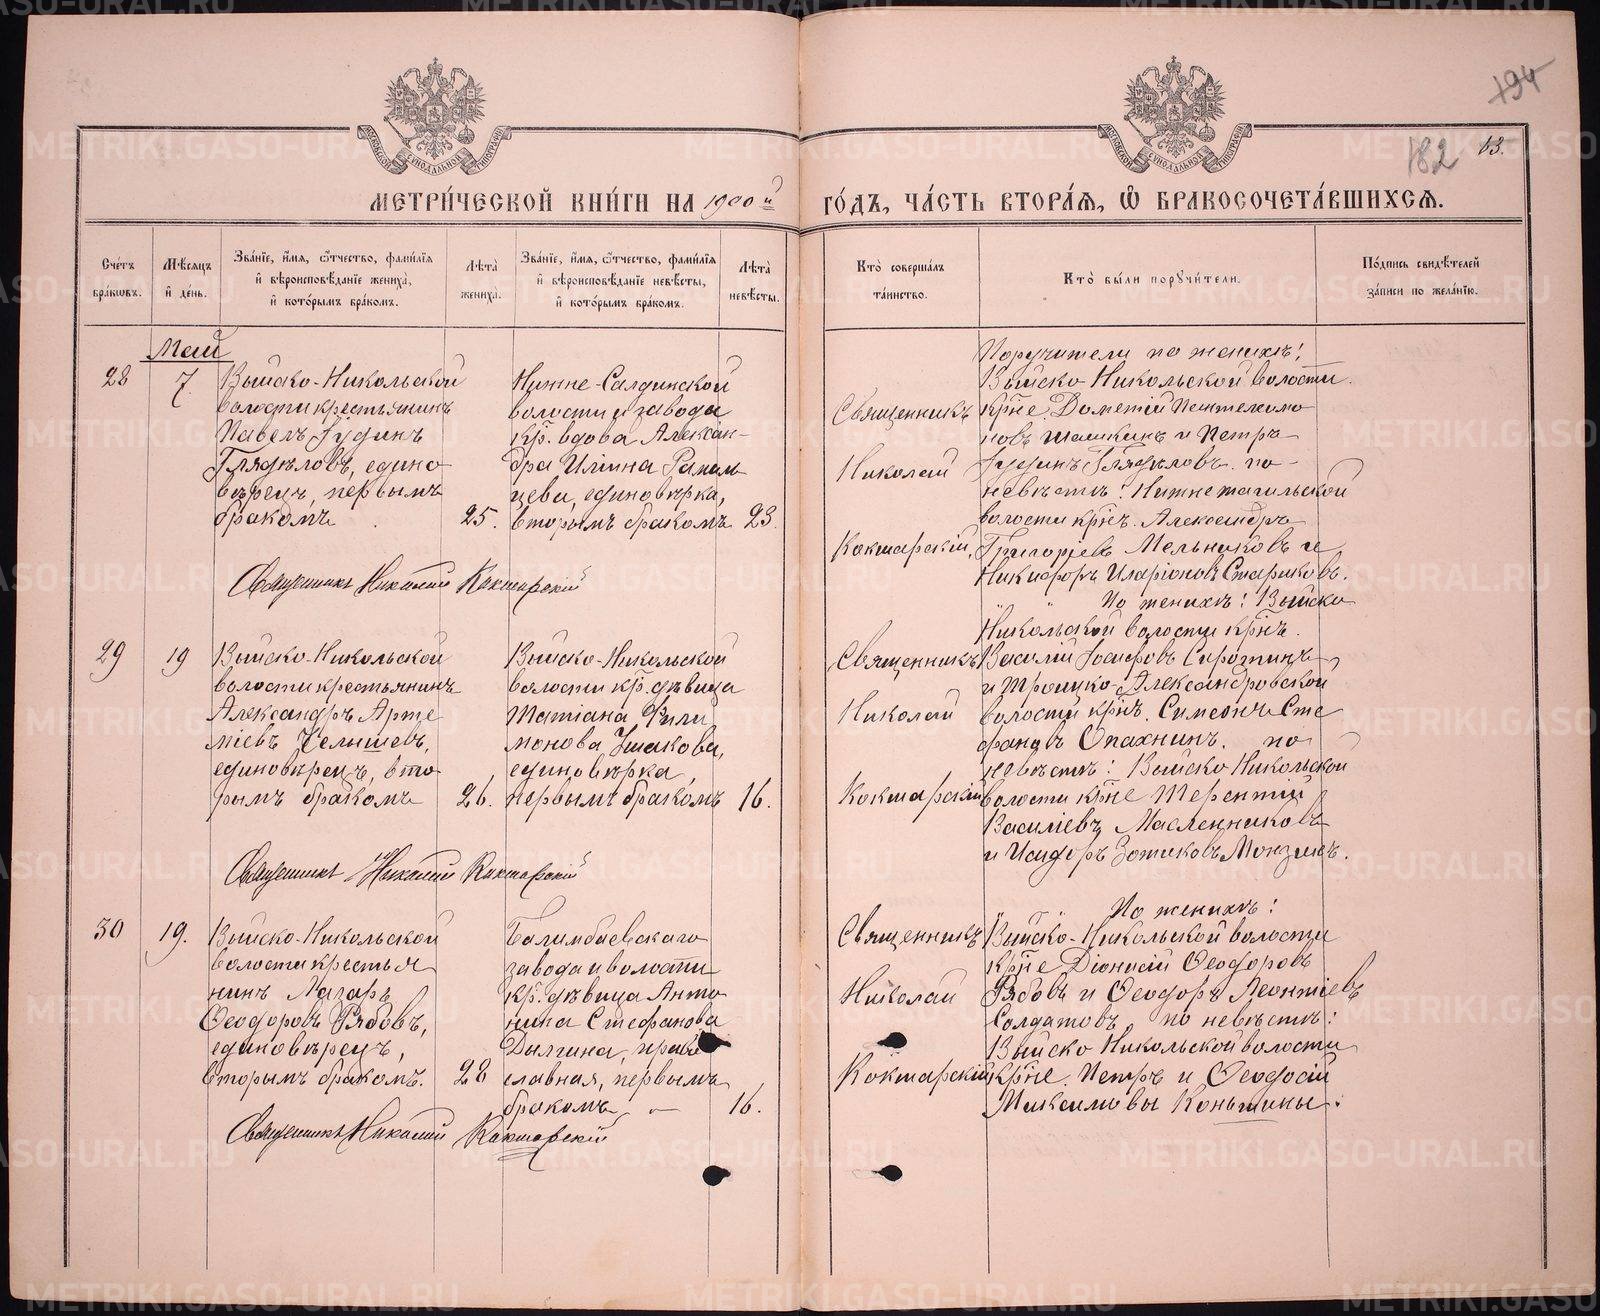 194
182
63.
МЕТРИ́ЧЕСКОЙ КНИ́ГИ НА 1900 й ГО́ДЪ, ЧА́СТЬ ВТОРА́Я, Ѽ БРАКОСОЧЕТА́ВШИХСѦ.
Сче́тъ бра́кѡвъ.
Мѣ́сяцъ и́ де́нь.
Зва́нїе, и́мя, ѻ́тчество, фами́лїя и́ вѣроисповѣ́данїе жениха̀, и́ кото́рымъ бра́комъ.
Лѣ́та жениха̀.
Зва́нїе, и́мя, ѻ́тчество, фами́лїя и́ вѣроисповѣ́данїе невѣ́сты, и́ кото́рымъ бра́комъ.
Лѣ́та невѣ́сты.
Кто̀ соверша́лъ та́инство.
Кто̀ бы́ли порꙋчи́тели.
По́дпись свидѣ́телей за́писи по жела́нїю.
Май
28
7.
Выйско-Никольской
волости крестьянинъ
Павелъ Іудинъ
Глядѣловъ, едино
вѣрецъ, первымъ
бракомъ
25.
Нижне-Салдинской
волости и завода
кр. вдова Алексан-
дра Иліина Рапаль
цева, единовѣрка,
вторымъ бракомъ
23.
Священникъ
Николай
Кокшарскій,
Поручители по женихѣ:
Выйско-Никольской волости
кр҃не Дометій Пантелеимо
новъ Шашкинъ и Петръ
Іудинъ Глядѣловъ. по-
невѣстѣ: Нижнетагильской
волости кр҃нъ. Александръ
Григорьевъ Мельниковъ и
Никифоръ Иларіоновъ Стариковъ.
Священникъ Николай Кокшарскій
29
19
Выйско-Никольской
волости крестьянинъ
Александръ Арте
міевъ Челышевъ,
единовѣрецъ, вто
рымъ бракомъ
26.
Выйско-Никольской
волости кр. дѣвица
Татіана Фили
монова Ушакова,
единовѣрка,
первымъ бракомъ
16.
Священникъ
Николай
Кокшарскій
По женихѣ: Выйско
Никольской волости кр҃нъ.
Василій Іосифовъ Сиротинъ
и Троицко-Александровской
волости кр҃нъ. Симеонъ Сте
фановъ Опахнинъ. по
невѣстѣ: Выйско Никольской
волости кр҃не Терентій
Василіевъ Масленниковъ
и Исидоръ Зотиковъ Монзинъ.
Священникъ Николай Кокшарскій
30
19.
Выйско-Никольской
волости крестья
нинъ Лазарь
Ѳеодоровъ Рябовъ,
единовѣрецъ,
вторымъ бракомъ.
28
Билимбаевскаго
завода и волости
кр. дѣвица Анто
нина Стефанова
Дылгина, право
славная, первымъ
бракомъ —
16.
Священникъ
Николай
Кокшарскій
По женихѣ:
Выйско-Никольской волости
кр҃не Діонисій Ѳеодоровъ
Рябовъ и Ѳеодоръ Леонтіевъ
Солдатовъ, по невѣстѣ:
Выйско Никольской волости
кр҃не. Петръ и Ѳеодосій
Максимовы Коньшины.
Священникъ Николай Кокшарскій
METRIKI.GASO-URAL.RU